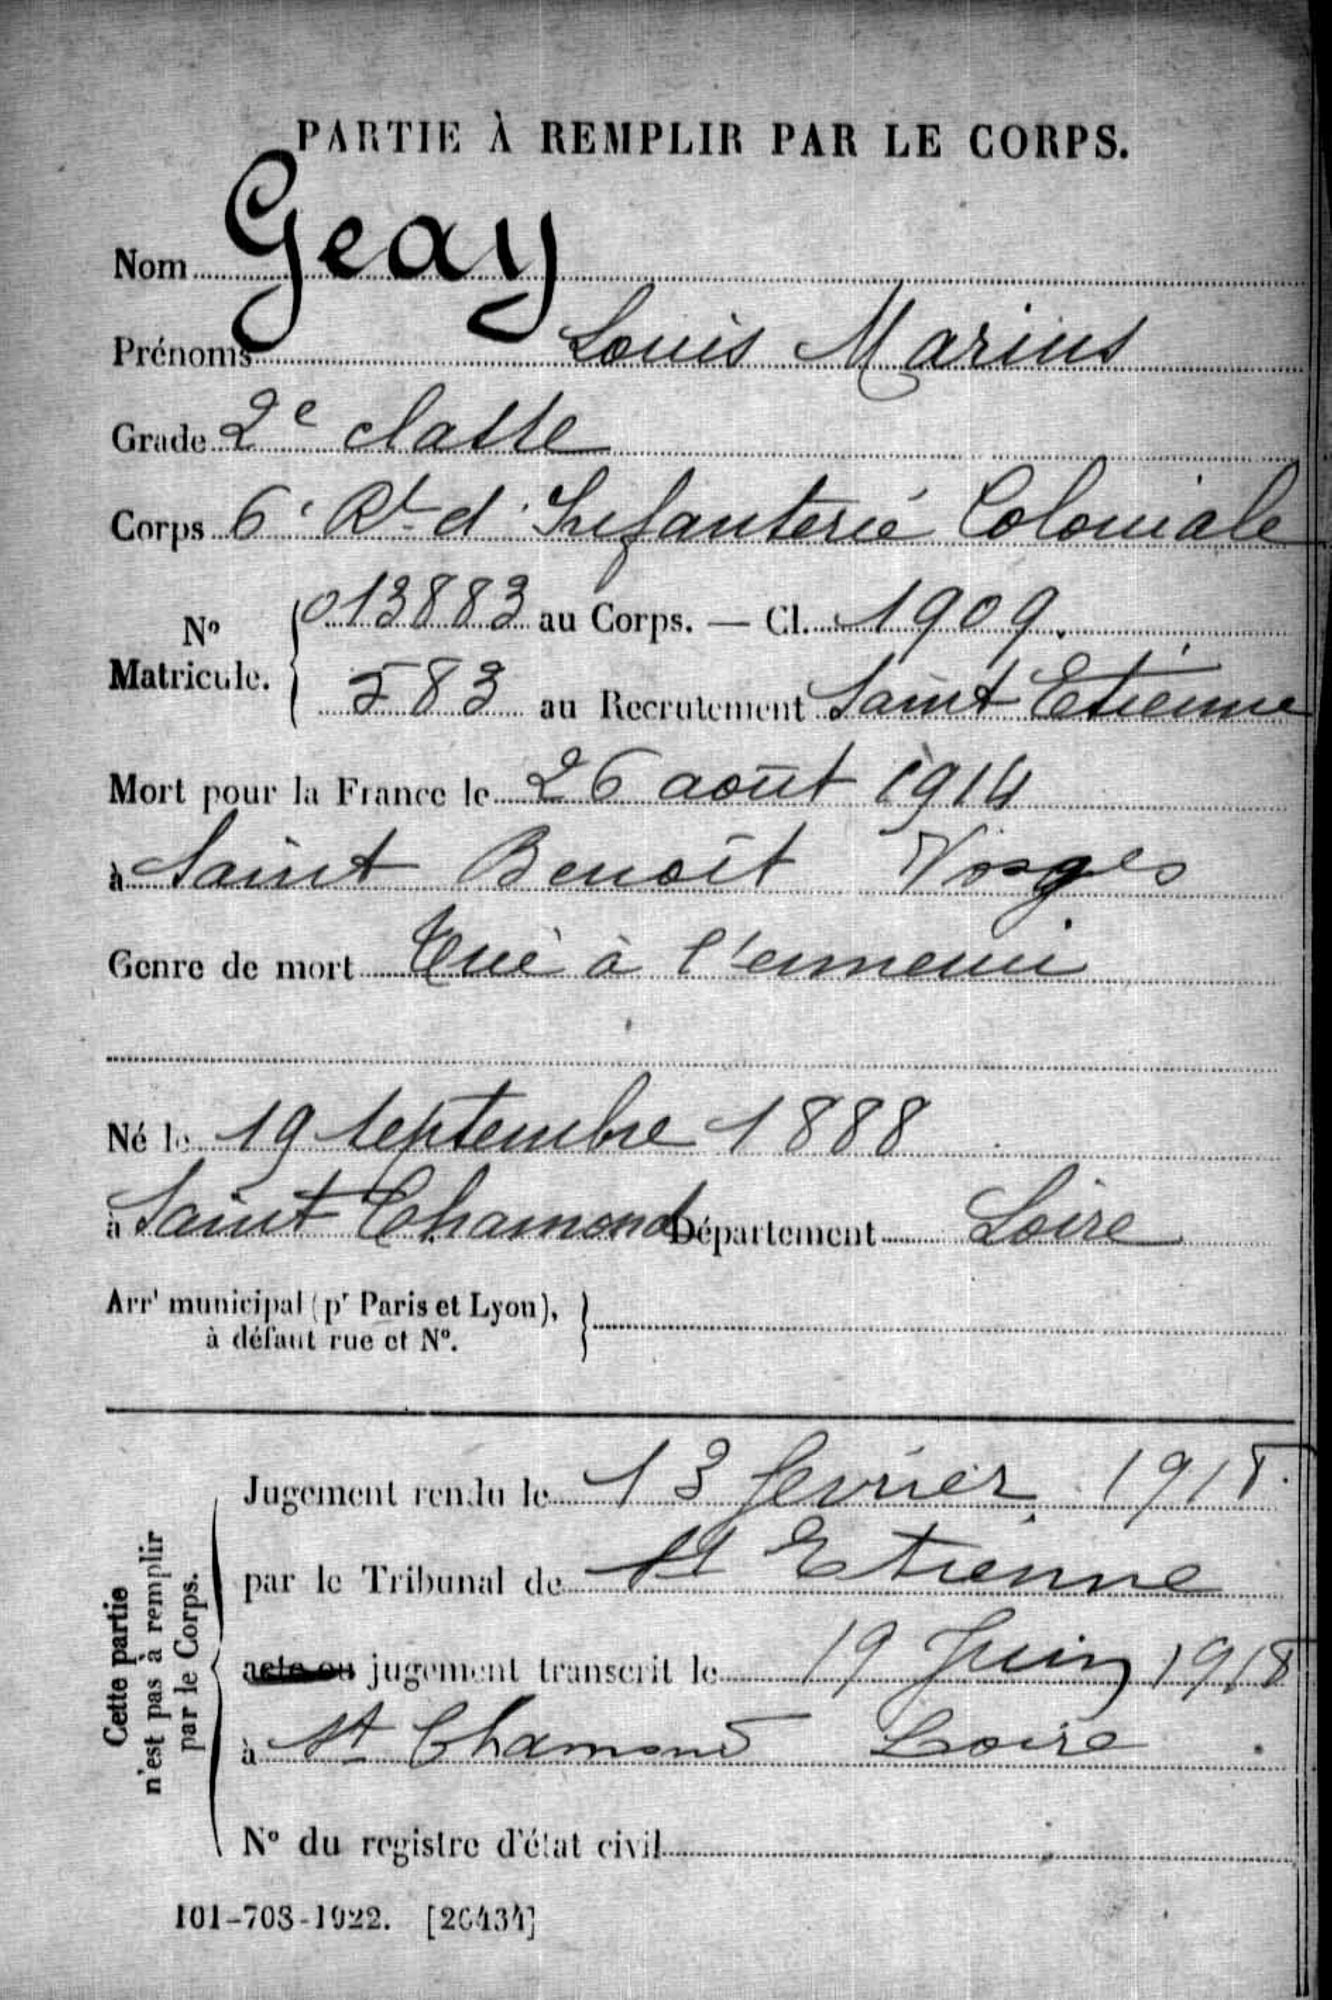 PARTIE À REMPLIR PAR LE CORPS.
Nom Geay
Prénoms Louis Marius
Grade 2e classe
Corps 6e Rt d'Infanterie Coloniale
No Matricule. 013883 au Corps. — Cl. 1909.
583 au Recrutement Saint Etienne
Mort pour la France le 26 août 1914
à Saint Benoît Vosges
Genre de mort Tué à l'ennemi
Né le 19 septembre 1888
à Saint Chamond Département Loire
Arrt municipal (pr Paris et Lyon),
à défaut rue et No.
Cette partie
n'est pas à remplir
par le Corps.
Jugement rendu le 13 février 1918
par le Tribunal de St Etienne
acte ou jugement transcrit le 19 Juin 1918
à St Chamond Loire
No du registre d'état civil
101-708-1922. [26434]